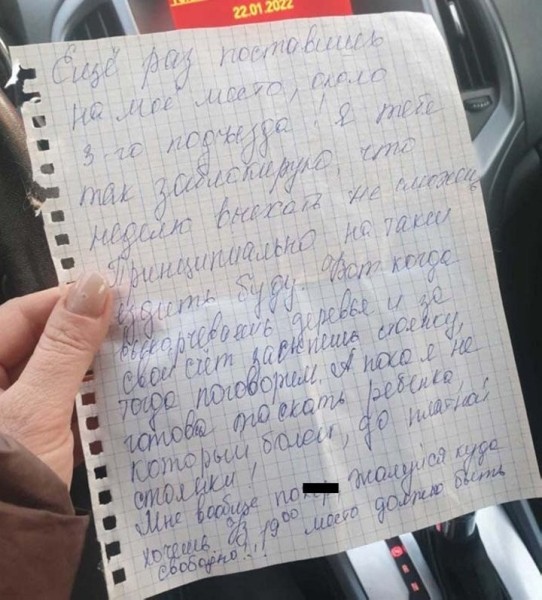 22.01.2022
Ещё раз поставишь
на моё место, около
3-го подъезда! Я тебе
так заблокирую, что
неделю выехать не сможешь
Принципиально на такси
ездить буду. Вот когда
выкарчеваешь деревья и за
свой счёт засыпешь стоянку,
тогда поговорим. А пока я не
готова таскать ребёнка,
который болел, до платной
стоянки!
Мне вообще по жалуйся куда
хочешь. В 19:00 место должно быть
свободно!!!